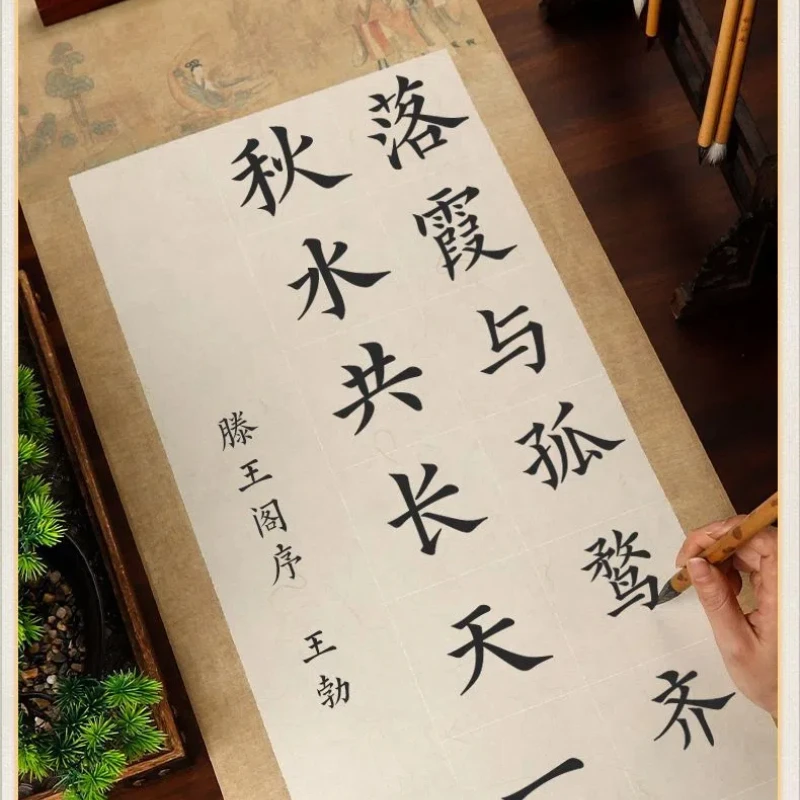 落霞与孤鹜齐
秋水共长天一
滕王阁序 王勃